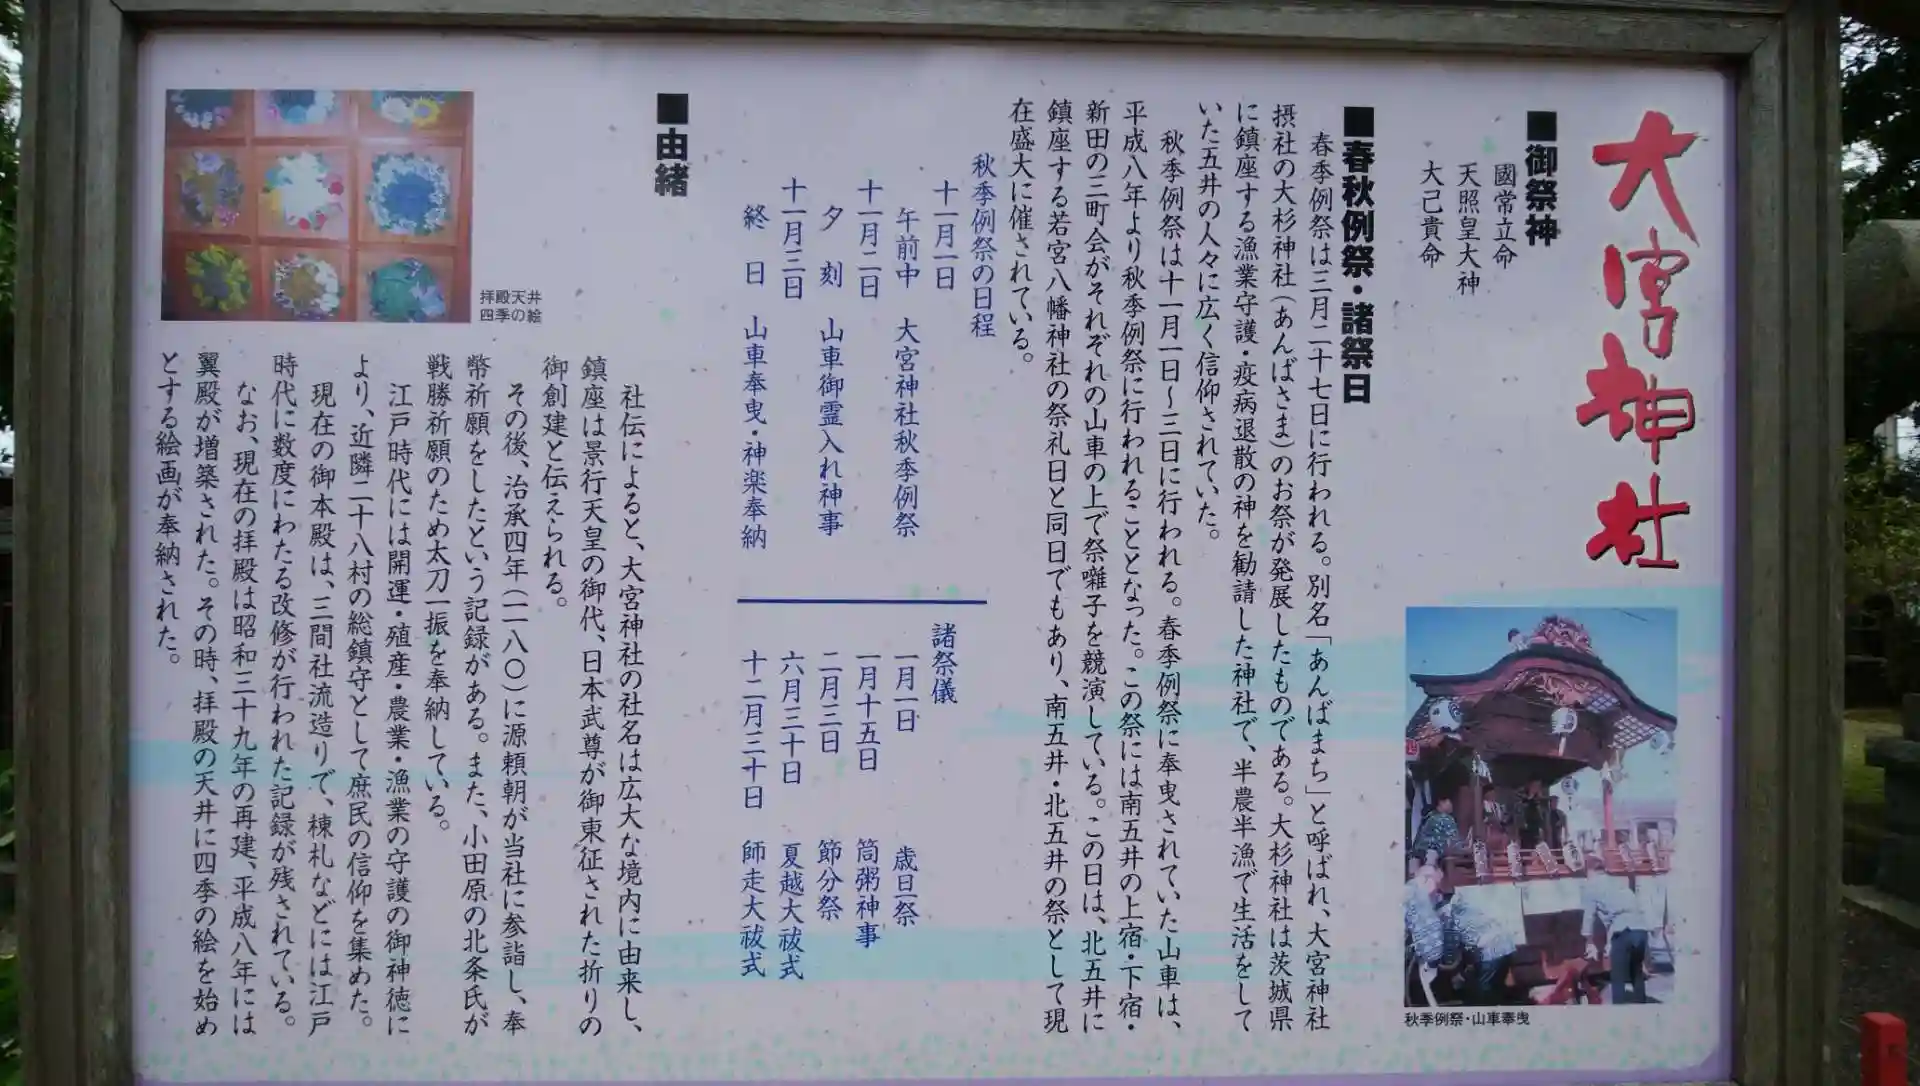 大宮神社
■御祭神
國常立命
天照皇大神
大己貴命
秋季例祭・山車奉曳
■春秋例祭・諸祭日
春季例祭は三月二十七日に行われる。別名「あんばまち」と呼ばれ、大宮神社
摂社の大杉神社(あんばさま)のお祭が発展したものである。大杉神社は茨城県
に鎮座する漁業守護・疫病退散の神を勧請した神社で、半農半漁で生活をして
いた五井の人々に広く信仰されていた。
秋季例祭は十一月一日〜三日に行われる。春季例祭に奉曳されていた山車は、
平成八年より秋季例祭に行われることとなった。この祭には南五井の上宿・下宿・
新田の三町会がそれぞれの山車の上で祭囃子を競演している。この日は、北五井に
鎮座する若宮八幡神社の祭礼日と同日でもあり、南五井・北五井の祭として現
在盛大に催されている。
秋季例祭の日程
十一月一日
午前中 大宮神社秋季例祭
十一月二日
夕刻 山車御霊入れ神事
十一月三日
終日 山車奉曳・神楽奉納
諸祭儀
一月一日 歳旦祭
一月十五日 筒粥神事
二月三日 節分祭
六月三十日 夏越大祓式
十二月三十日 師走大祓式
■由緒
社伝によると、大宮神社の社名は広大な境内に由来し、
鎮座は景行天皇の御代、日本武尊が御東征された折りの
御創建と伝えられる。
その後、治承四年(一一八〇)に源頼朝が当社に参詣し、奉
幣祈願をしたという記録がある。また、小田原の北条氏が
戦勝祈願のため太刀一振を奉納している。
江戸時代には開運・殖産・農業・漁業の守護の御神徳に
より、近隣二十八村の総鎮守として庶民の信仰を集めた。
現在の御本殿は、三間社流造りで、棟札などには江戸
時代に数度にわたる改修が行われた記録が残されている。
なお、現在の拝殿は昭和三十九年の再建、平成八年には
翼殿が増築された。その時、拝殿の天井に四季の絵を始め
とする絵画が奉納された。
拝殿天井
四季の絵